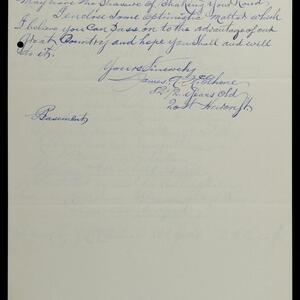 may have the Pleasure of Shaking Your Hand.
I enclose Some Optimistic Matter which
I believe You Can Pass on to the advantage of our
Great Country and hope You Shall and will
do it.
Yours Sincerely
James
82 1/2 Years Old
20
Basement